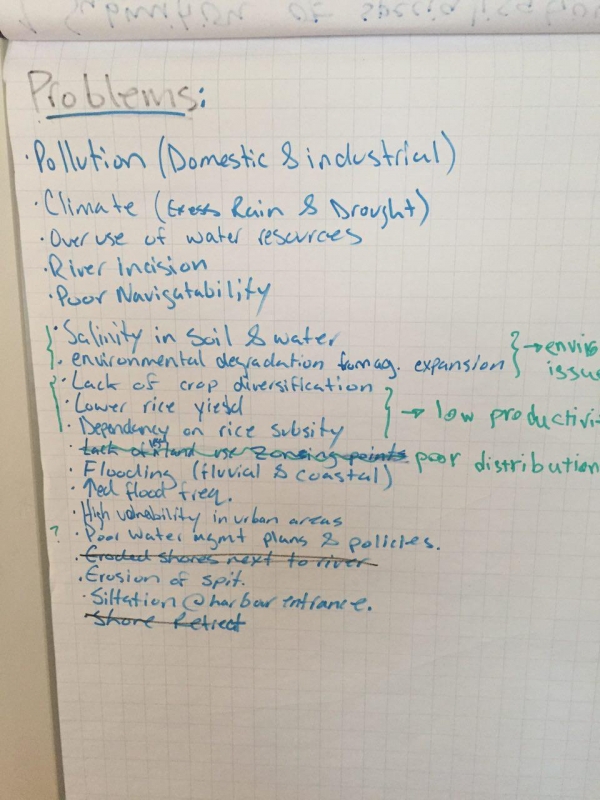 Problems:
· Pollution (Domestic & industrial)
· Climate (Excess Rain & Drought)
· Over use of water resources
· River Incision
· Poor Navigatability
· Salinity in soil & water
· environmental degradation from ag. expansion } → enviro
issue
· Lack of crop diversification
· Lower rice yield
· Dependency on rice subsity } → low productivit
· Lack of land use zoning points poor distribution
· Flooding (fluvial & coastal)
· ↑ed flood freq.
· High vulnability in urban areas
? · Poor water mgmt plans & policies.
· Eroded shores next to river
· Erosion of spit.
· Siltation @ harbour entrance.
· Shore Retreat